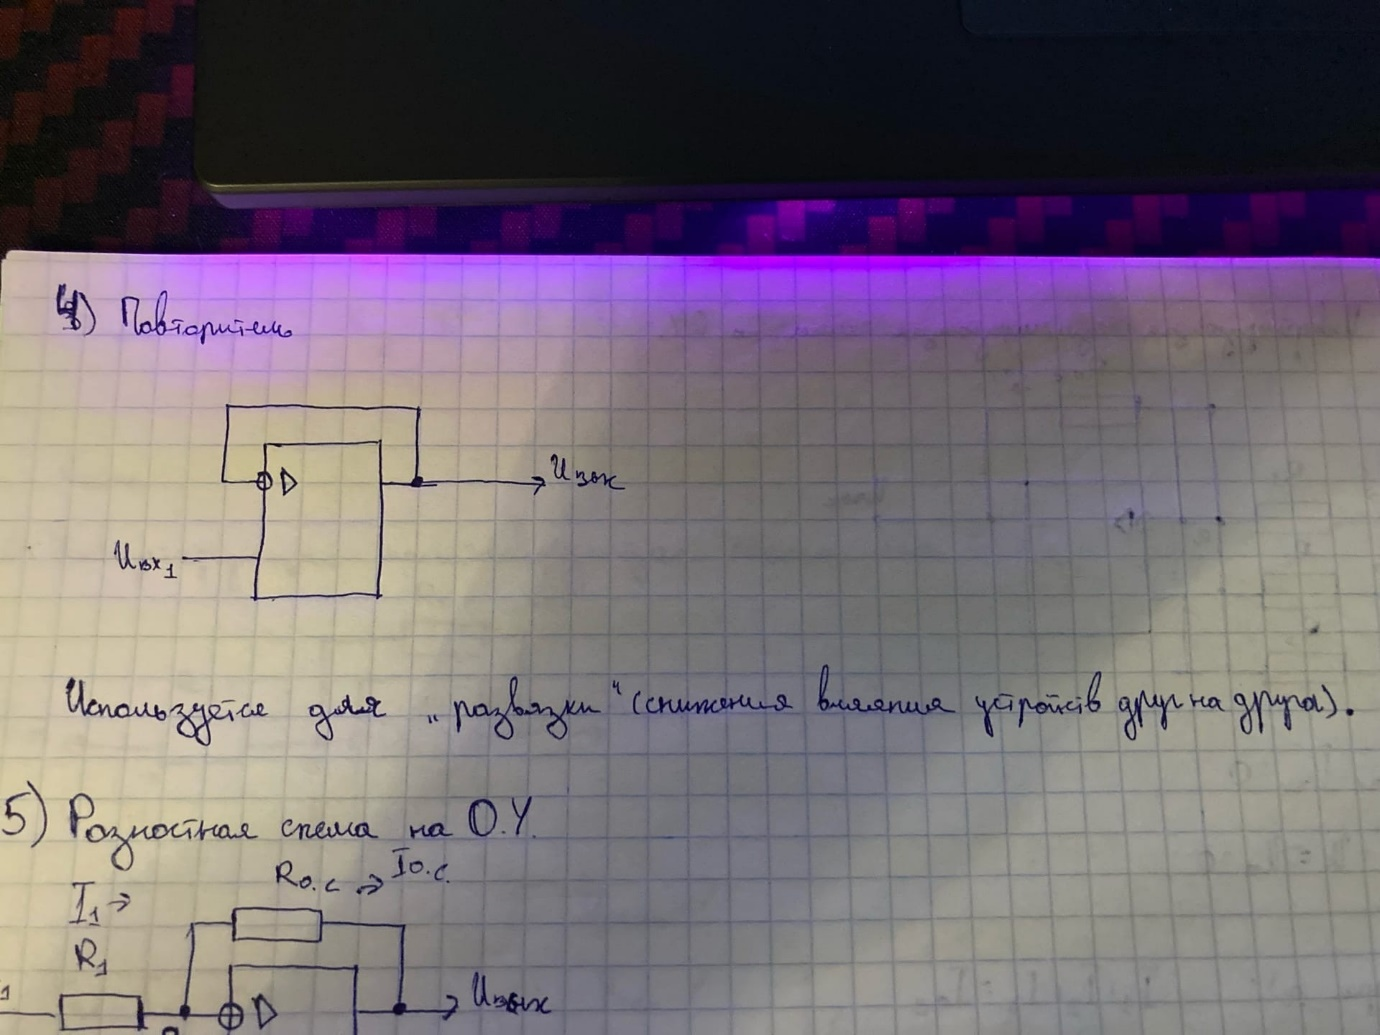 4) Повторитель
Uвых
Uвх1
Используется для „развязки“ (снижения влияния устройств друг на друга).
5) Разностная схема на О.У.
Rо.с → Iо.с.
I1 →
R1
1
Uвых